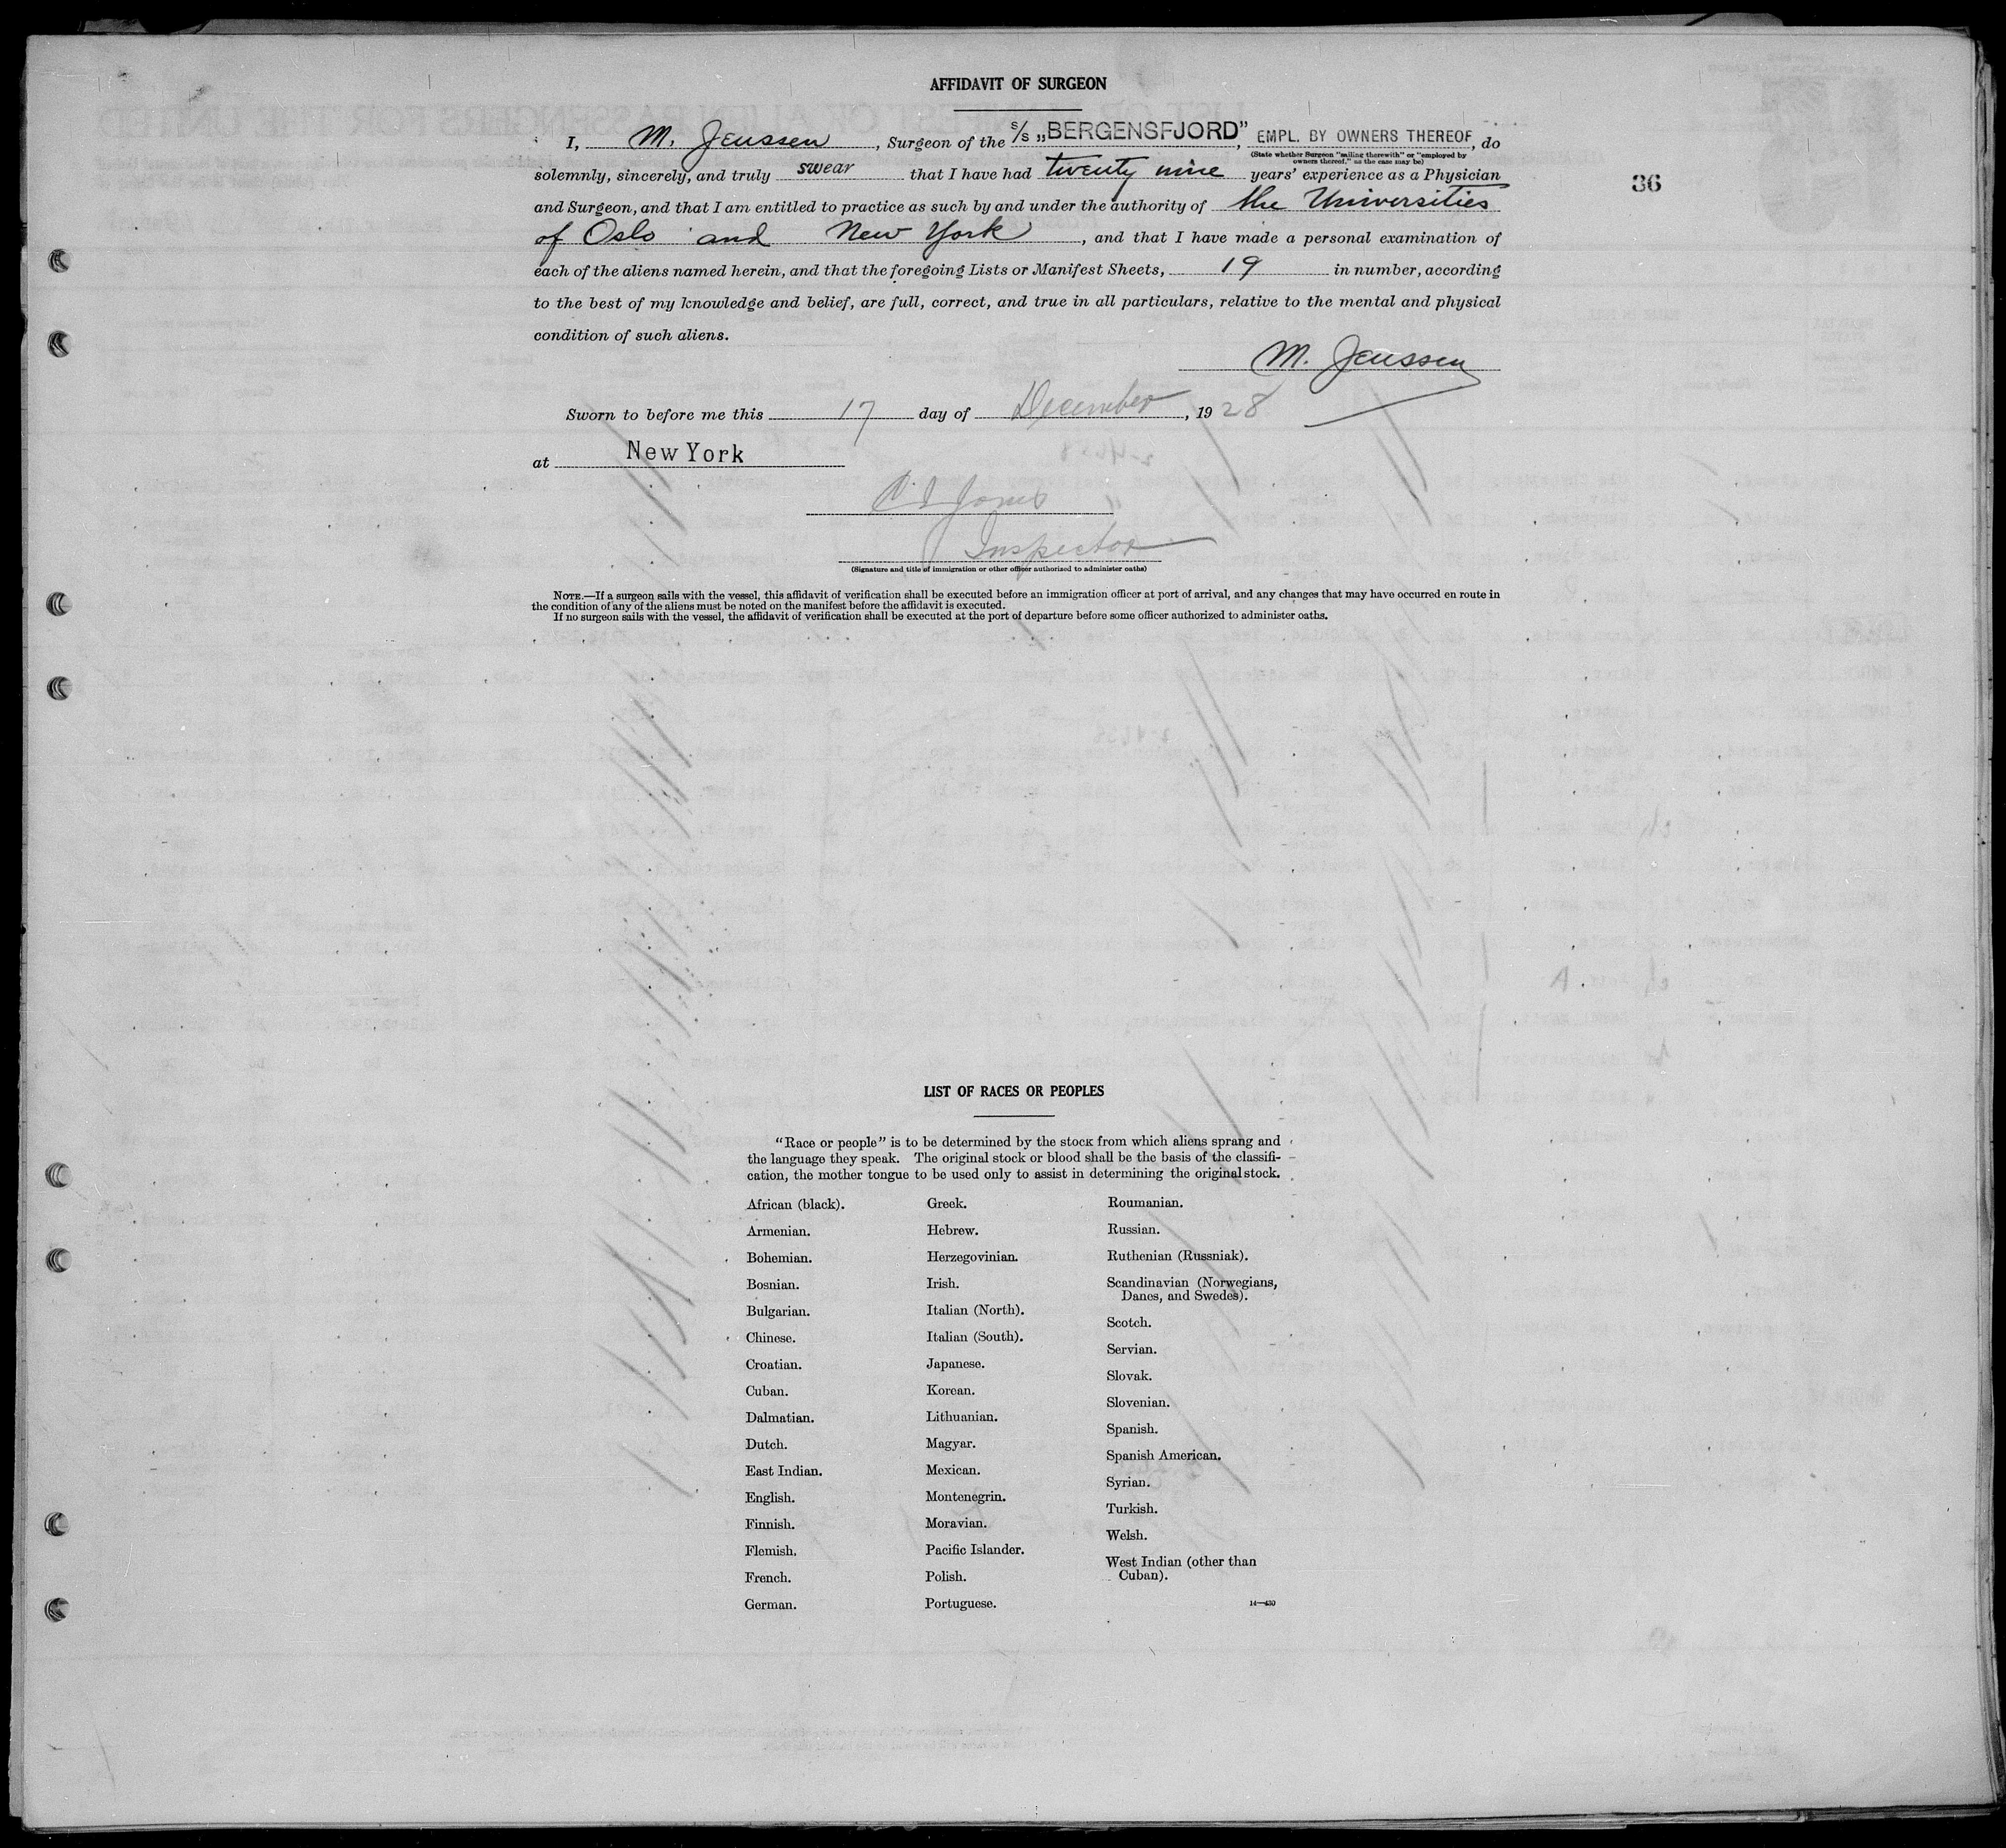 AFFIDAVIT OF SURGEON
I, M. Jenssen, Surgeon of the S/S „BERGENSFJORD”, EMPL. BY OWNERS THEREOF, do
(State whether Surgeon "sailing therewith" or "employed by
owners thereof," as the case may be)
solemnly, sincerely, and truly swear that I have had twenty nine years' experience as a Physician
36
and Surgeon, and that I am entitled to practice as such by and under the authority of the Universities
of Oslo and New York, and that I have made a personal examination of
each of the aliens named herein, and that the foregoing Lists or Manifest Sheets, 19 in number, according
to the best of my knowledge and belief, are full, correct, and true in all particulars, relative to the mental and physical
condition of such aliens.
M. Jenssen
Sworn to before me this 17 day of December, 1928
at New York
Jones
Inspector
(Signature and title of immigration or other officer authorized to administer oaths)
NOTE.—If a surgeon sails with the vessel, this affidavit of verification shall be executed before an immigration officer at port of arrival, and any changes that may have occurred en route in
the condition of any of the aliens must be noted on the manifest before the affidavit is executed.
If no surgeon sails with the vessel, the affidavit of verification shall be executed at the port of departure before some officer authorized to administer oaths.
LIST OF RACES OR PEOPLES
"Race or people" is to be determined by the stock from which aliens sprang and
the language they speak. The original stock or blood shall be the basis of the classifi-
cation, the mother tongue to be used only to assist in determining the original stock.
African (black).
Armenian.
Bohemian.
Bosnian.
Bulgarian.
Chinese.
Croatian.
Cuban.
Dalmatian.
Dutch.
East Indian.
English.
Finnish.
Flemish.
French.
German.
Greek.
Hebrew.
Herzegovinian.
Irish.
Italian (North).
Italian (South).
Japanese.
Korean.
Lithuanian.
Magyar.
Mexican.
Montenegrin.
Moravian.
Pacific Islander.
Polish.
Portuguese.
Roumanian.
Russian.
Ruthenian (Russniak).
Scandinavian (Norwegians,
Danes, and Swedes).
Scotch.
Servian.
Slovak.
Slovenian.
Spanish.
Spanish American.
Syrian.
Turkish.
Welsh.
West Indian (other than
Cuban).
14—430